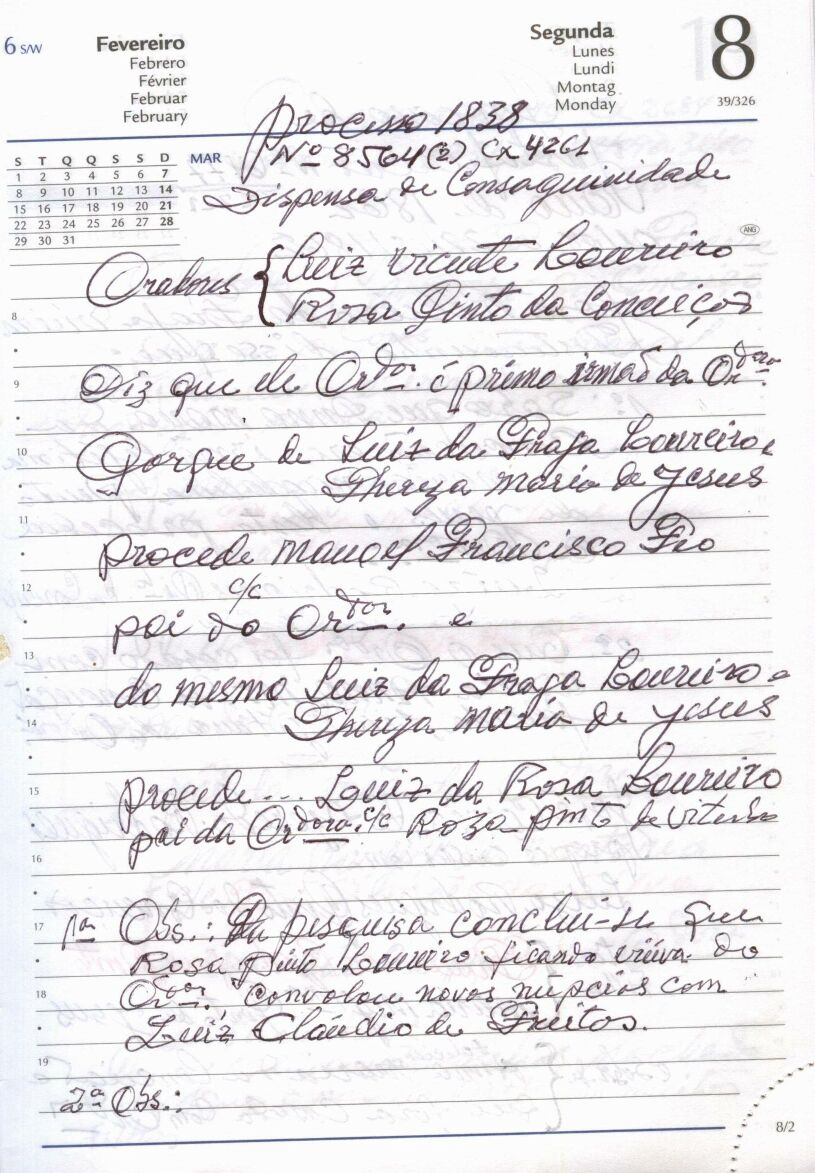 6 S/W
Fevereiro
Febrero
Février
Februar
February
Segunda
Lunes
Lundi
Montag
Monday
8
39/326
MAR
S T Q Q S S D
1 2 3 4 5 6 7
8 9 10 11 12 13 14
15 16 17 18 19 20 21
22 23 24 25 26 27 28
29 30 31
ANG
Processo 1838
Nº 8564 (2) Cx 4261
Dispensa de Consaguinidade
Oradores { Luiz Vicente Loureiro
Rosa Pinto da Conceição
8
9 Diz que ele Ordor. é primo irmão da Ordora.
10 Porque de Luiz da Fraga Loureiro e
Thereza Maria de Jesus
11
procede Manoel Francisco
12 c/c
pai do Ordor. e
13
do mesmo Luiz da Fraga Loureiro e
14 Thereza Maria de Jesus
15 procede... Luiz da Rosa Loureiro
pai da Ordora. c/c Roza Pinto de Viterbo
16
17 1ª Obs.: Da pesquisa conclui-se que
Rosa Pinto Loureiro ficando viúva do
18 Ordor. Convolou novos núpcios com
Luiz Claúdio de Freitas.
19
2ª Obs.:
8/2